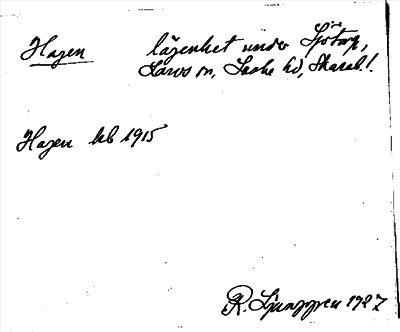 Hagen lägenhet under Sjötorp,
Lavos sn, Laske hd, Skarab. l.
Hagen kb 1915
R. Ljunggren 1927